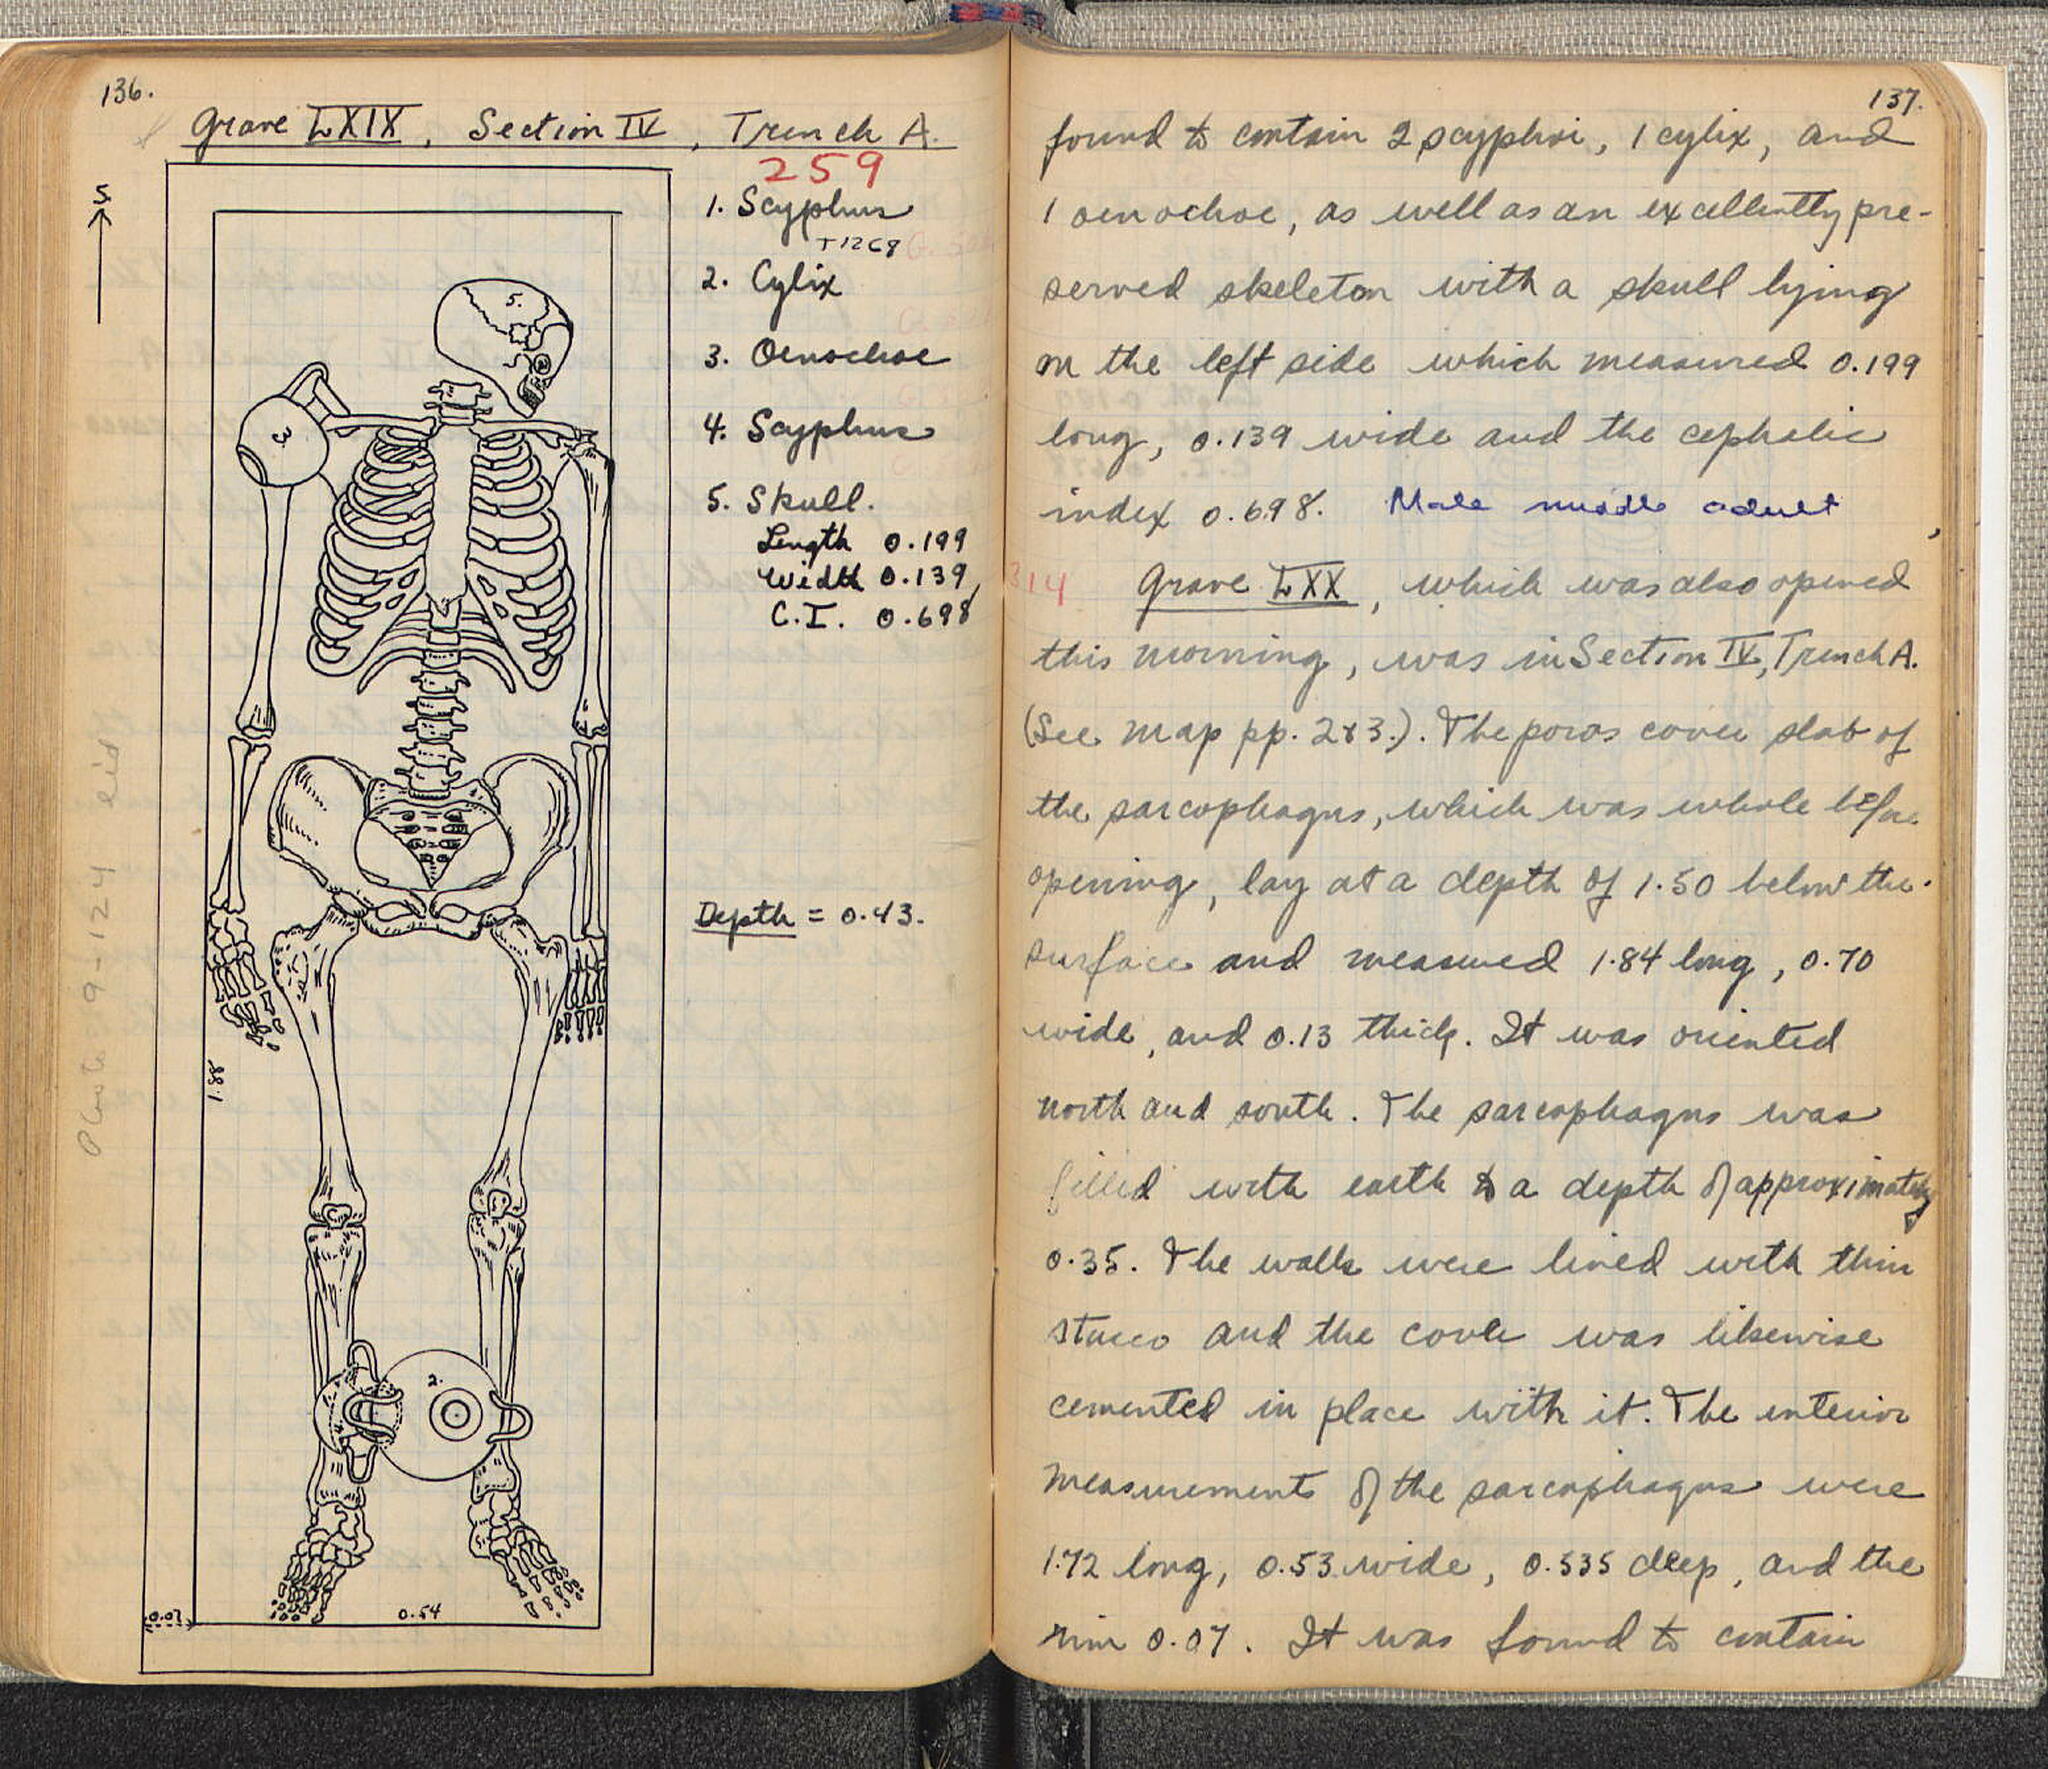 136.
Grave LXIX, Section IV, Trench A.
259
S.
1. Scyphus
T1268
2. Cylix
3. Oenochoe
4. Scyphus
5. Skull.
Length 0.199
Width 0.139
C.I. 0.698
Depth = 0.43.
5.
3
2.
1.88
0.54
0.07
137.
found to contain 2 scyphoi, 1 cylix, and
1 oenochoe, as well as an excellently pre-
served skeleton with a skull lying
on the left side which measured 0.199
long, 0.139 wide and the cephalic
index 0.698. Male middle adult
314 Grave LXX, which was also opened
this morning, was in Section IV, Trench A.
(See map pp. 2&3.). The poros cover slab of
the sarcophagus, which was whole before
opening, lay at a depth of 1.50 below the
surface and measured 1.84 long, 0.70
wide, and 0.13 thick. It was oriented
north and south. The sarcophagus was
filled with earth to a depth of approximately
0.35. The walls were lined with thin
stucco and the cover was likewise
cemented in place with it. The interior
measurements of the sarcophagus were
1.72 long, 0.53 wide, 0.535 deep, and the
rim 0.07. It was found to contain